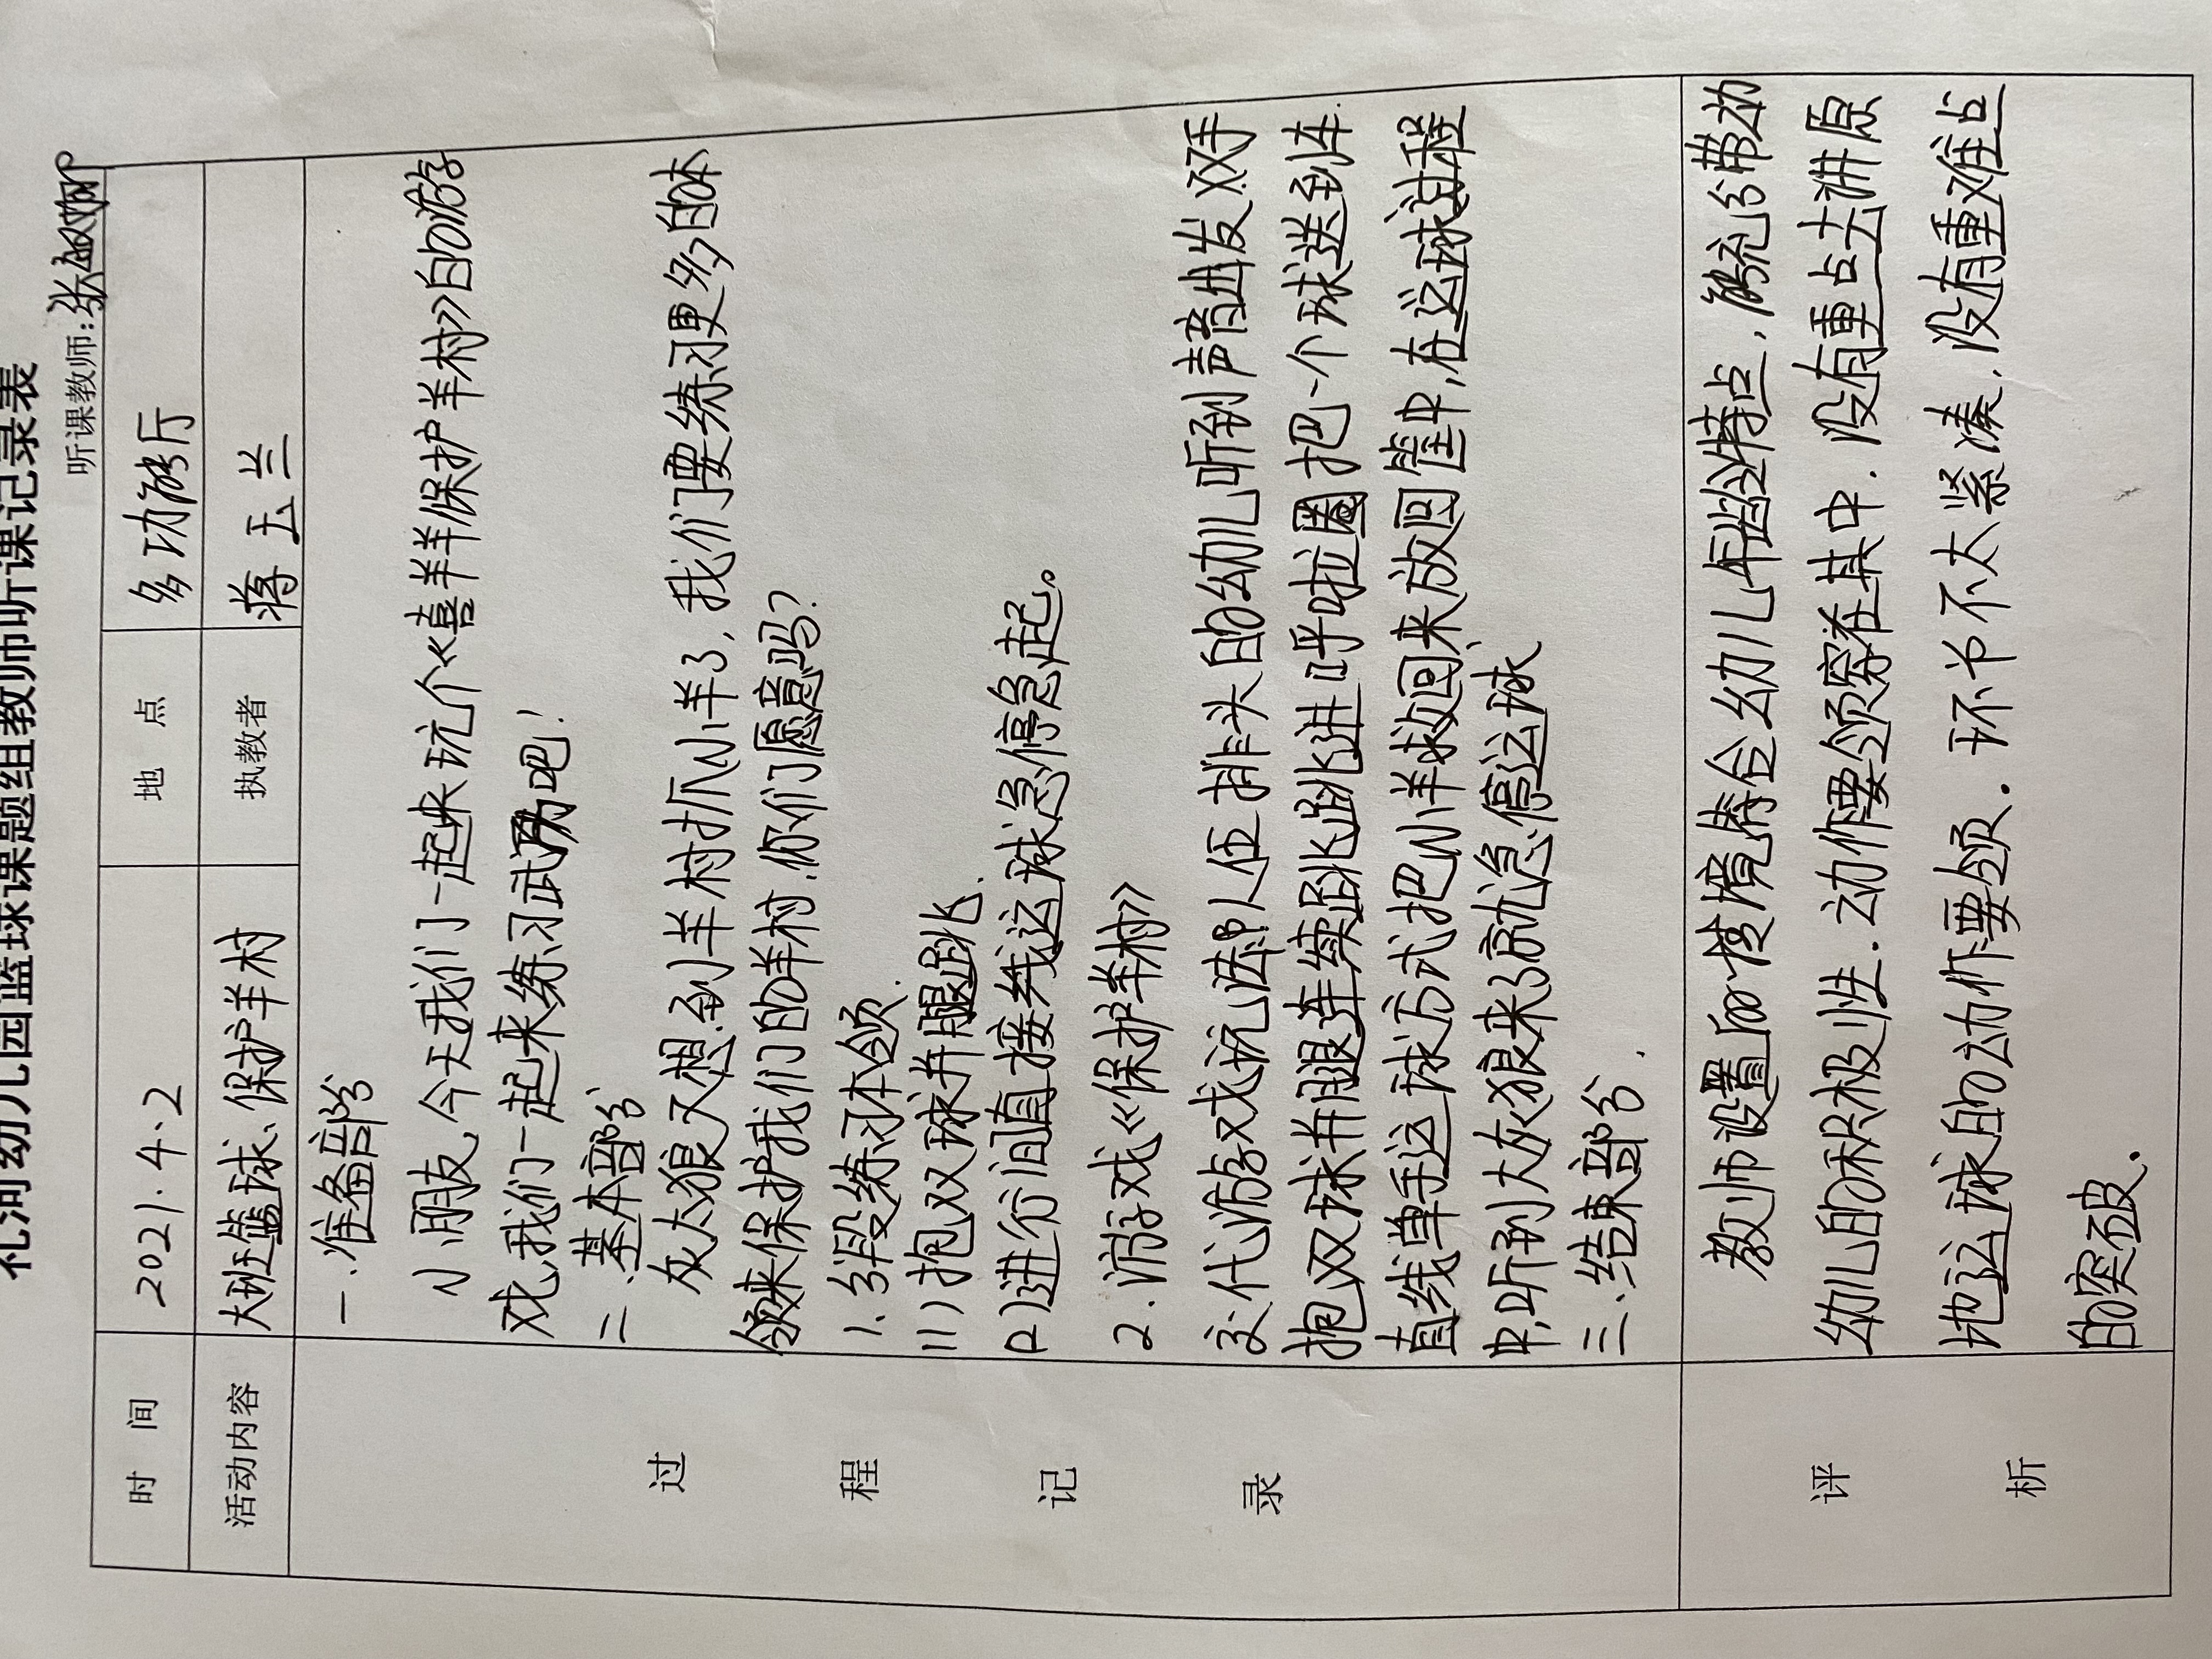 礼河幼儿园篮球课题组教师听课记录表
听课教师:张
时 间 2021.4.2 地 点 多功能厅
活动内容 大班篮球、保护羊村 执教者 蒋玉兰
过程记录
一.准备部分
小朋友,今天我们一起来玩个《喜羊羊保护羊村》的游
戏,我们一起来练习武功吧!
二.基本部分
灰太狼又想到羊村抓小羊了,我们要练习更多的本
领来保护我们的羊村.你们愿意吗?
1.分段练习本领.
(1)抱双球并腿跳.
(2)进行间直接线运球急停急起。
2.游戏《保护羊村》
交代游戏玩法:8人伍排头的幼儿听到声音出发双手
抱双球并腿连续跳跳进呼啦圈把一个球送到车.
直线单手运球方式把小羊救回来放回筐中,在运球过程
中,听到大灰狼来了就急停运球
三.结束部分.
评析
教师设置的情境符合幼儿年龄特点,能充分带动
幼儿的积极性.动作要领穿在其中.没有重点去讲原
地运球的动作要领.环节不太紧凑.没有重难点
的突破.